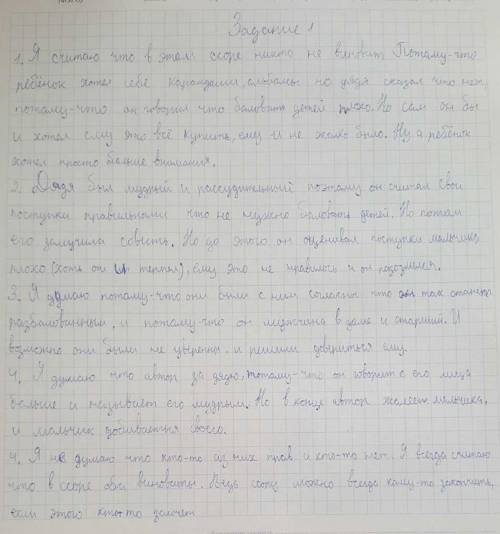 Задание 1
1. Я считаю что в этом споре никто не виноват Потому-что
ребёнок хотел себе карандаши, альбомы но дядя сказал что нет,
потому-что он говорил что баловать детей плохо. Но сам он бы
и хотел ему это всё купить, ему и не жалко было. Ну а ребёнок
хотел просто больше внимания.
2. Дядя был мудрый и рассудительный поэтому он считал свои
поступки правильными что не нужно баловать детей. Но потом
его замучила совисть. Но до этого он оценивал поступки мальчика
плохо (хоть он и терпел), ему это не нравилось и он
3. Я думаю потому-что они были с ним согласны что он так станет
разбалованным, и потому-что он мужчина в доме и старший. И
возможно они были не уверенны и решили довериться ему.
4. Я думаю что автор за дядю, потому-что он говорит с его лица
больше и называет его мудрым. Но в конце автор жалеет мальчика,
и мальчик добивается своего.
4. Я не думаю что кто-то из них прав и кто-то нет. Я всегда считаю
что в споре оба виноваты. Ведь спор можно всегда кому-то закончить,
если этого кто-то захочет.